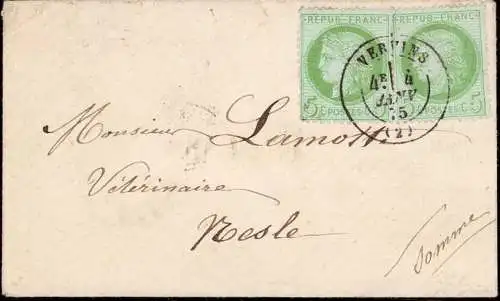 REPUB FRANC REPUB FRANC
5 C POSTES POSTES C 5
VERVINS
4E 4
JANV
75
(2)
Monsieur Lamotte
Vétérinaire
Nesle
Somme